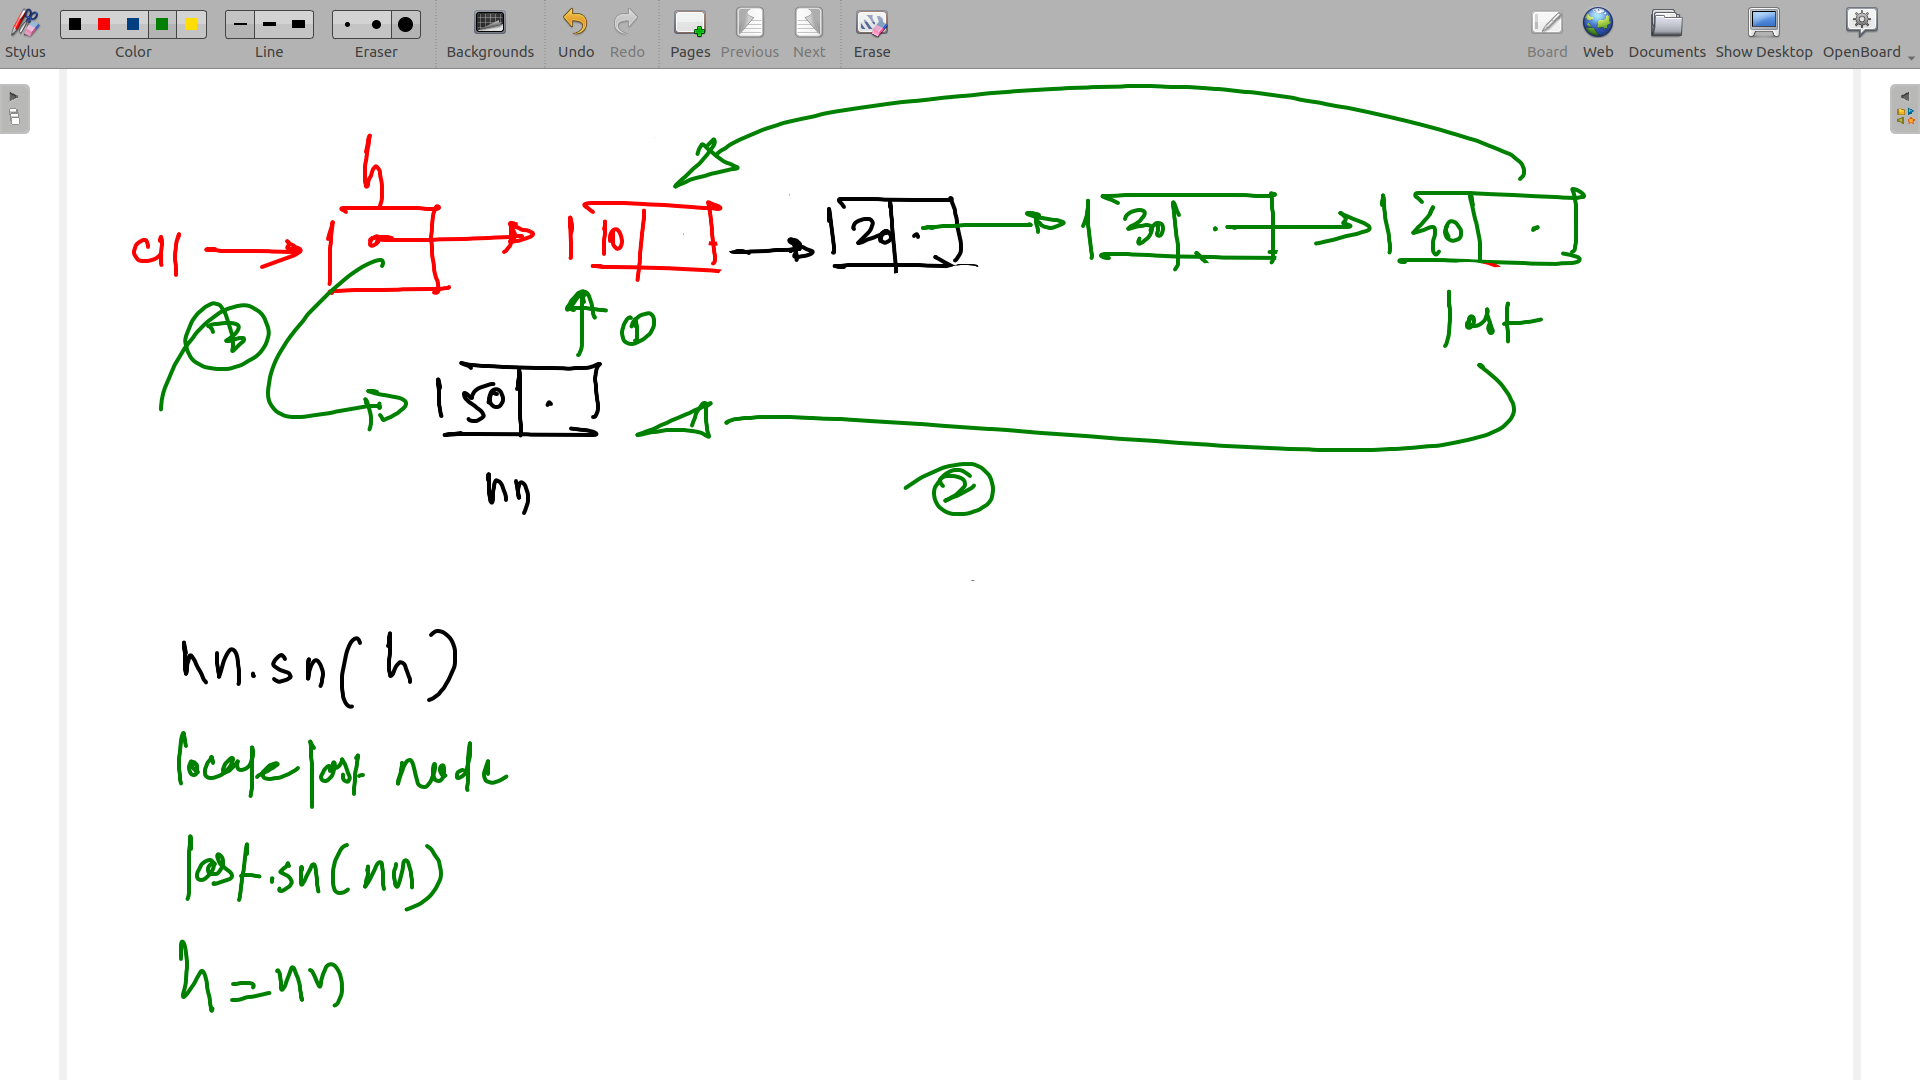 Stylus Color Line Eraser Backgrounds Undo Redo Pages Previous Next Erase Board Web Documents Show Desktop OpenBoard
h
cll 10 20 30 40
3 1 last
50
nn 2
nn.sn(h)
locate last node
last.sn(nn)
h=nn